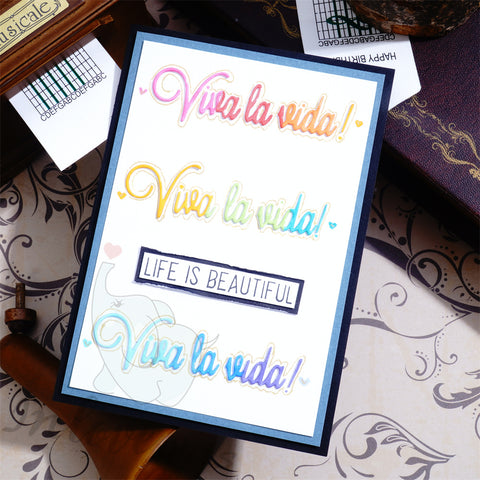 usicale
CDEFGABCDEFGABC
CDEFGABCDEFGABC
HAPPY BIRTHD
Viva la vida!
Viva la vida!
LIFE IS BEAUTIFUL
Viva la vida!